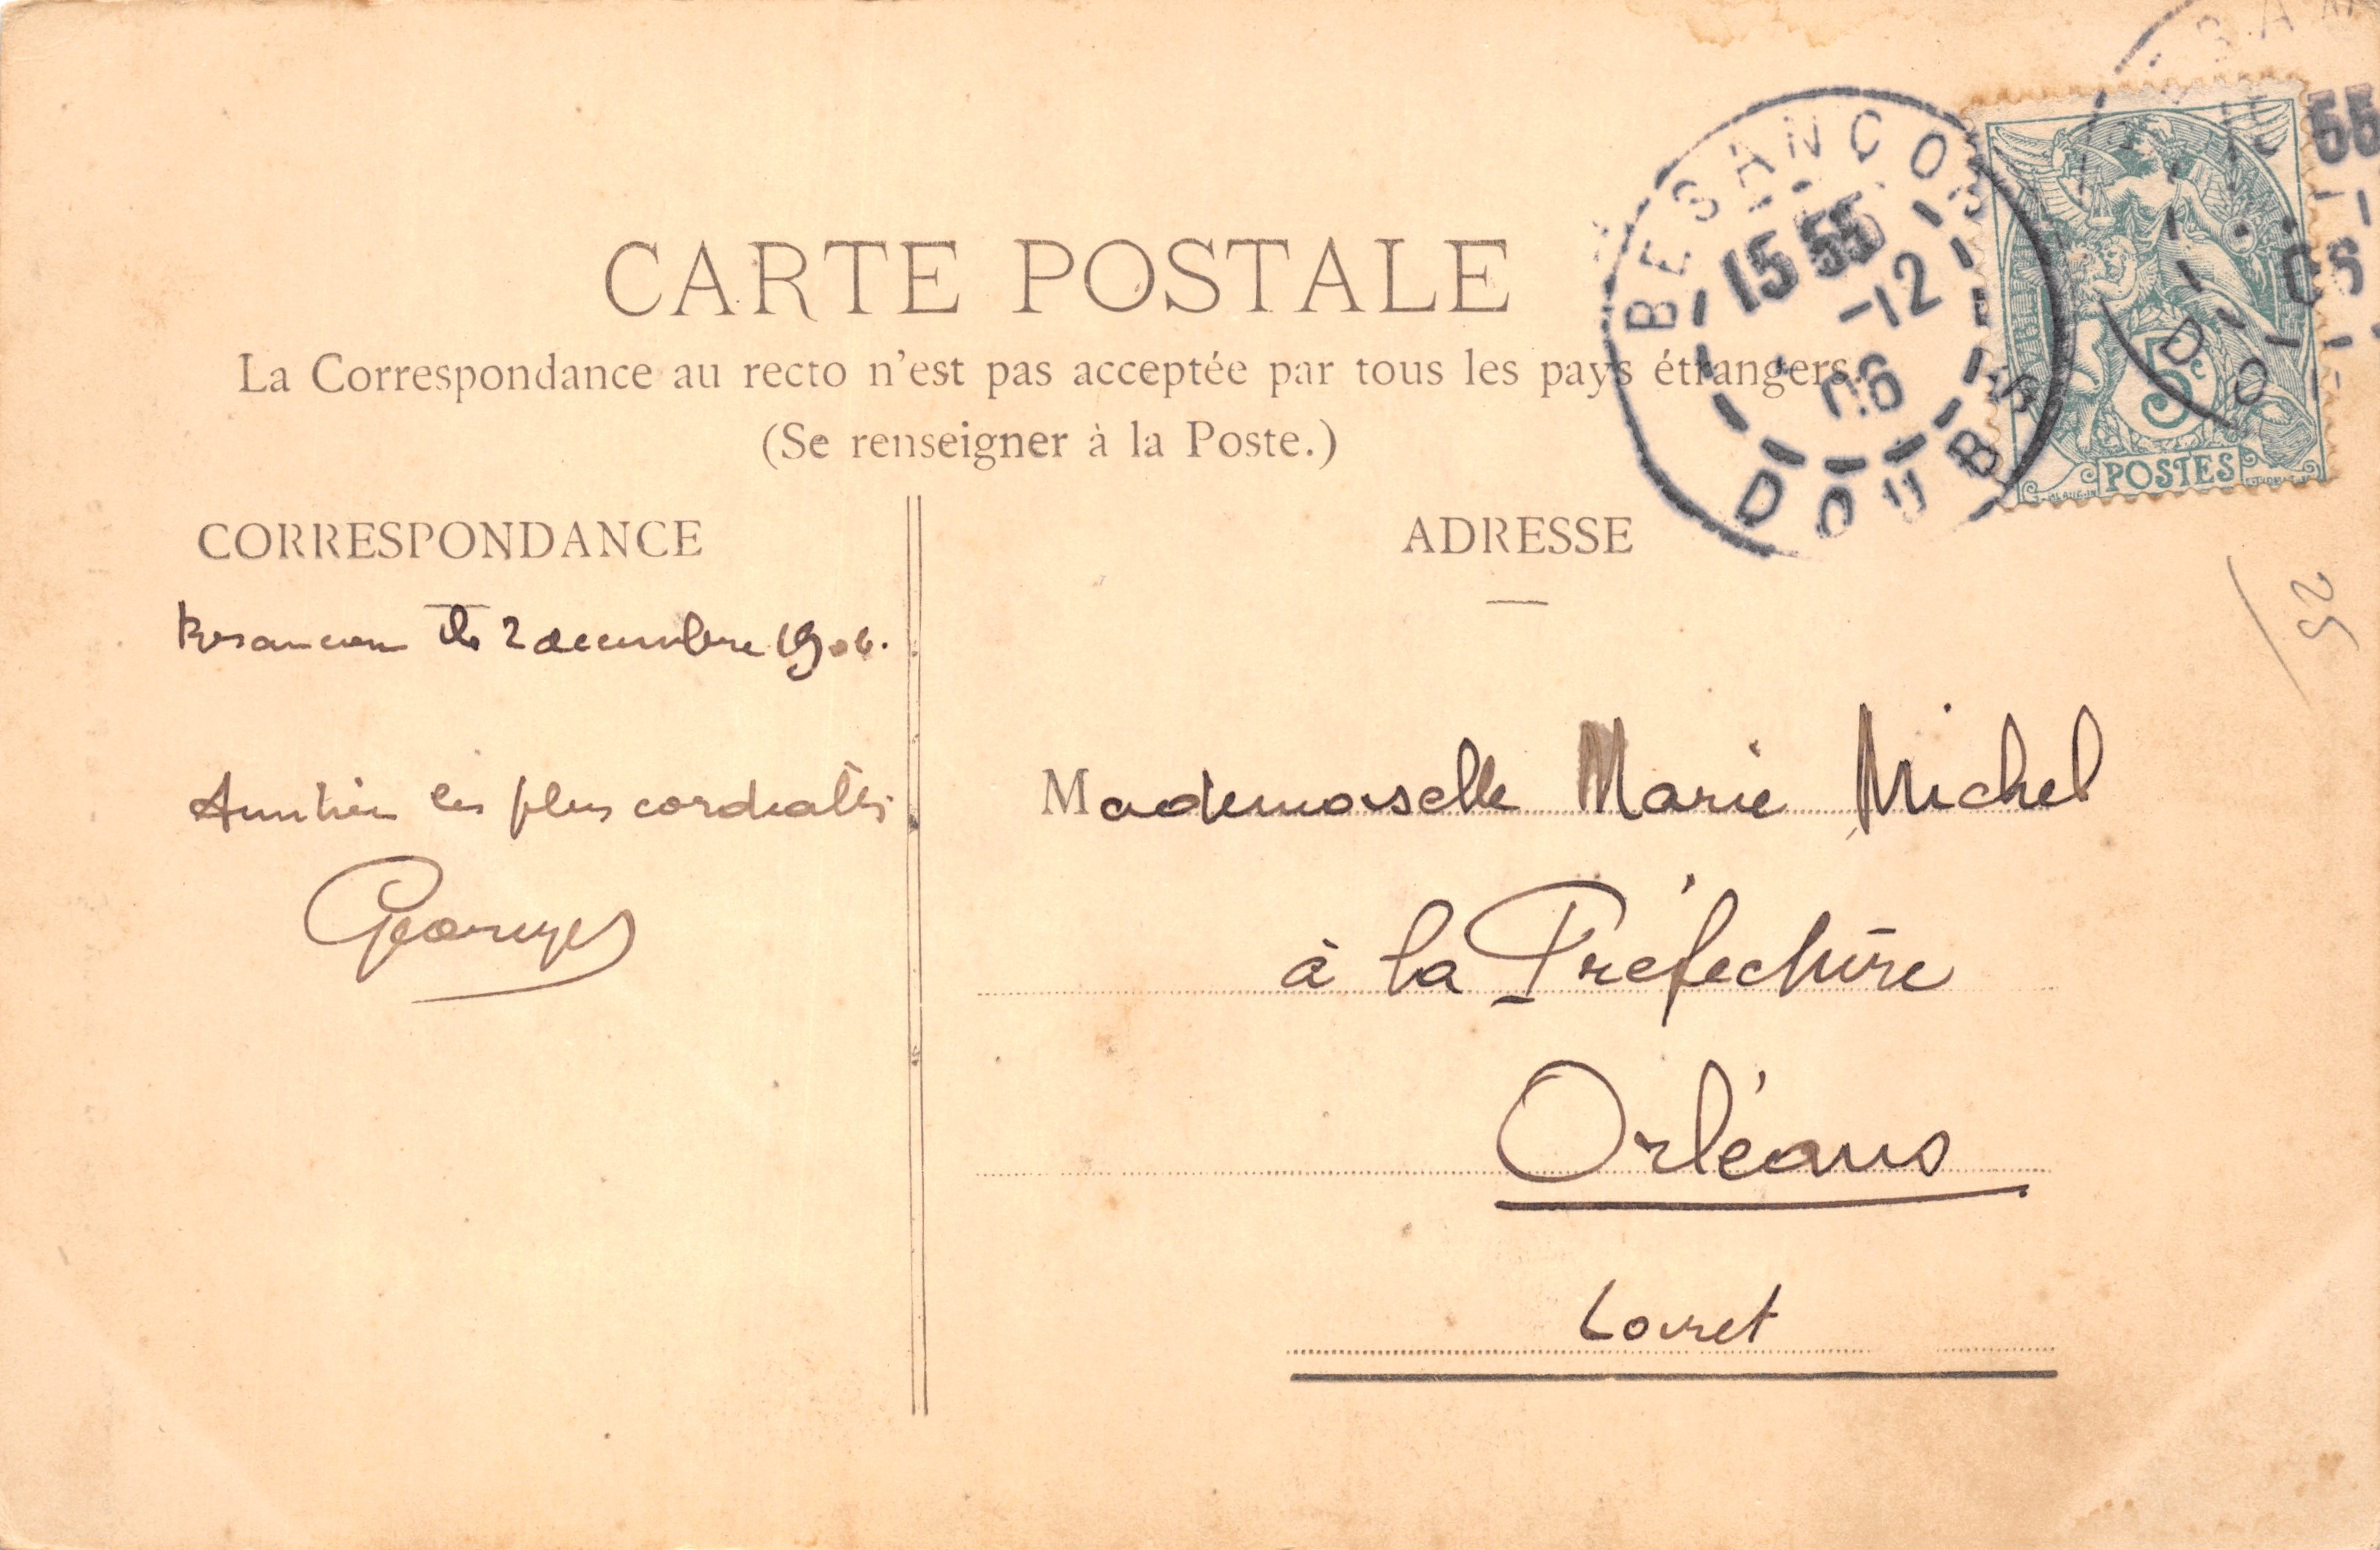 CARTE POSTALE
La Correspondance au recto n'est pas acceptée par tous les pays étrangers.
(Se renseigner à la Poste.)
BESANÇON
15 55
-12
06
DOUBS
55
06
DO
5c
POSTES
CORRESPONDANCE
ADRESSE
52
Besancon le 2 decembre 1906.
Amitiés les plus cordiales
Georges
Mademoiselle Marie Michel
à la Préfecture
Orléans
Loiret